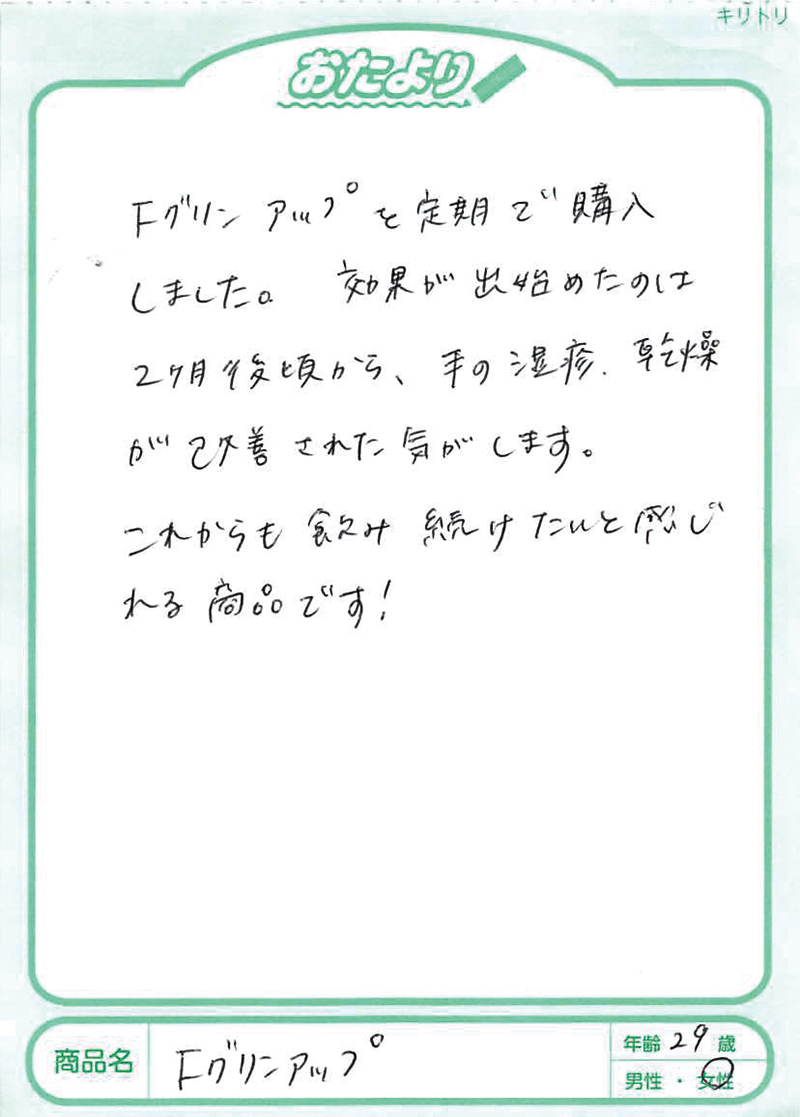 キリトリ
おたより
Fグリンアップを定期で購入
しました。 効果が出始めたのは
2ヶ月後頃から、手の湿疹、乾燥
が改善された気がします。
これからも飲み続けたいと感じ
れる商品です!
商品名 Fグリンアップ
年齢 29 歳
男性・女性